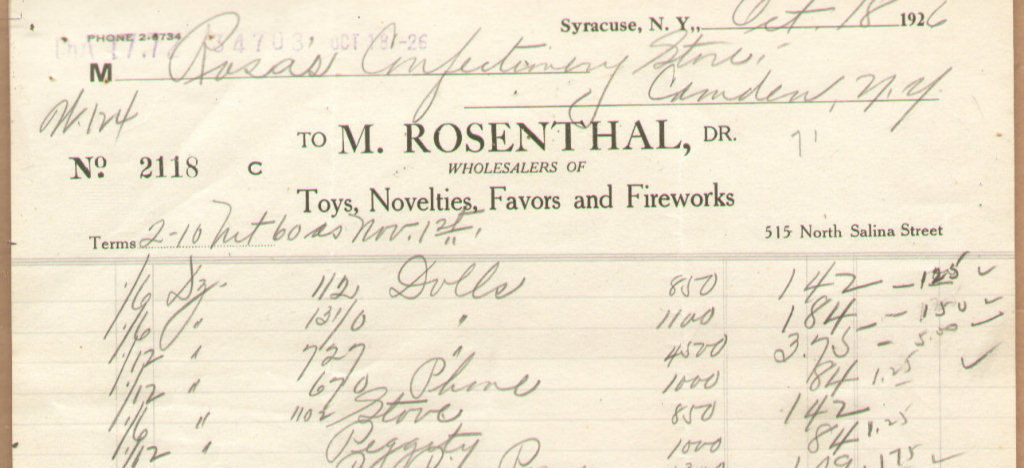 Syracuse, N. Y., Oct. 18 1926
PHONE 2-6734
34703 OCT 19 -26
M Rosas Confectionery Store,
Camden, N.Y.
W. 124
TO M. ROSENTHAL, DR.
71
No. 2118 C
WHOLESALERS OF
Toys, Novelties, Favors and Fireworks
Terms 2-10 Net 60 as Nov. 1st.
515 North Salina Street
1/6 Dz. 112 Dolls 850 142 – 125 ✓
1/6 " 131/0 " 1100 184 – 150 ✓
1/12 " 727 " 4500 3.75 – 5.00 ✓
1/12 " 670 Phone 1000 84 1.25 ✓
1/6 " 1102 Stove 850 142
1/12 " Peggity 1000 84 1.25
175 ✓